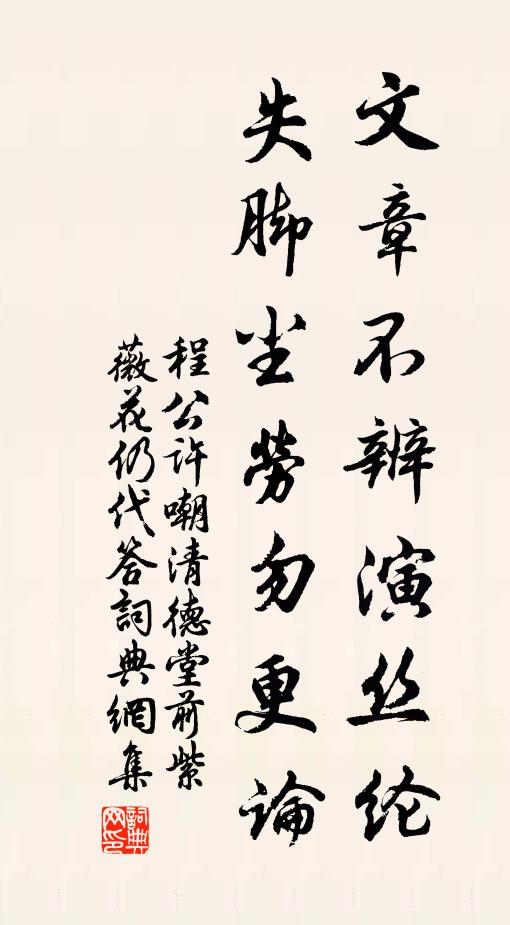 文章不辨演丝纶
失脚尘劳勿更论
程公许嘲清德堂前紫
薇花仍代答詞典網集
詞典网印